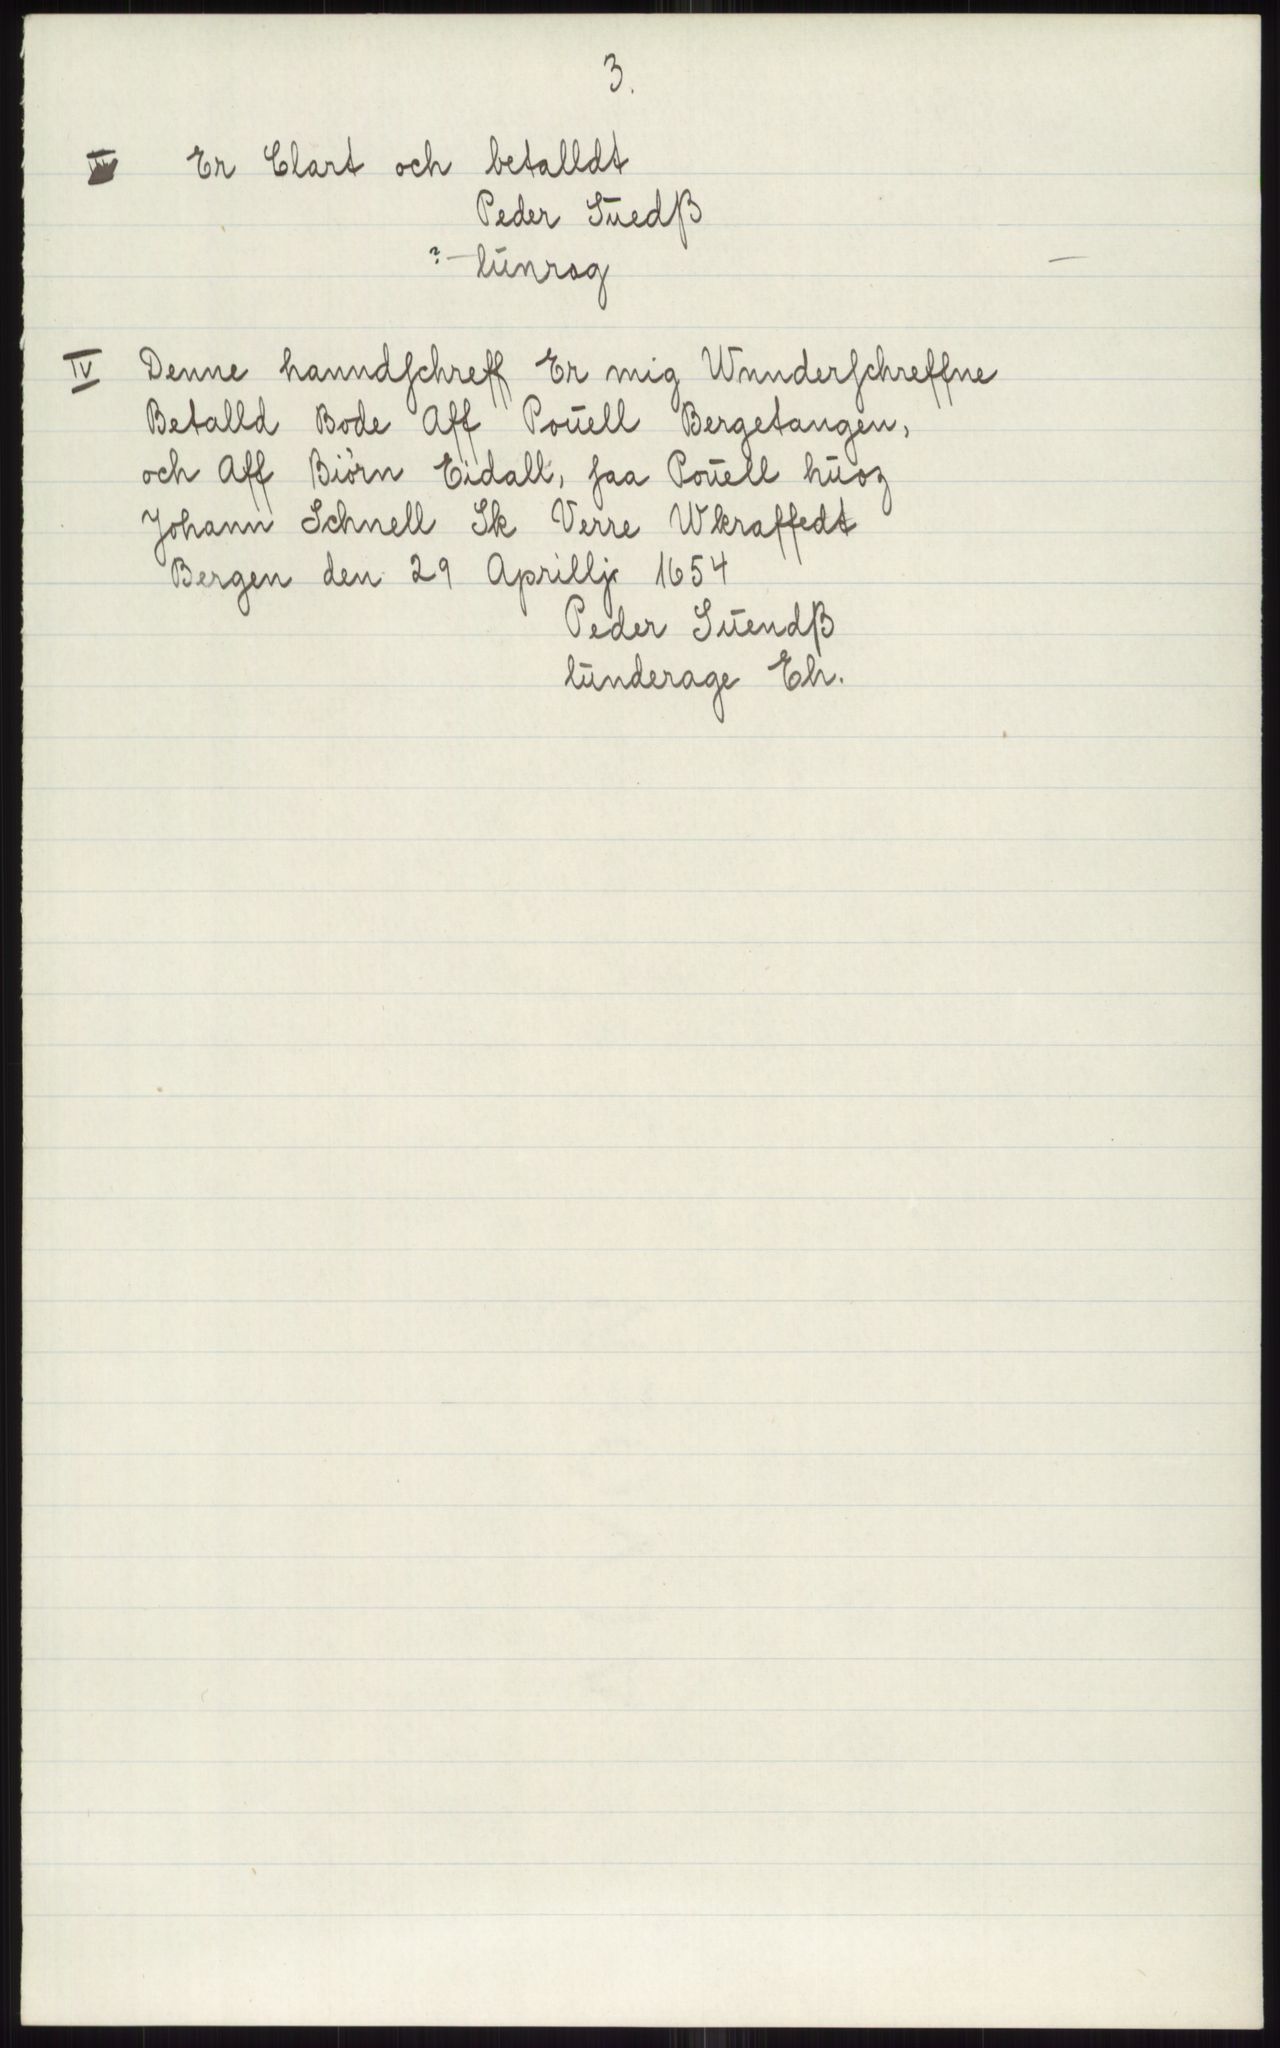 3.
Er Clart och betalldt
Peder Sūedß
? — lūnrog —
IV Denne hanndschreff Er mig Wnnderschreffne
Betalld Bode Aff Poūell Bergetangen,
och Aff Biörn Eidall, saa Poūell hūoz
Johann Schnell Sk Verre Wkraffedt
Bergen den 29 Aprillj 1654
Peder Sūendß
lūnderage Eh.